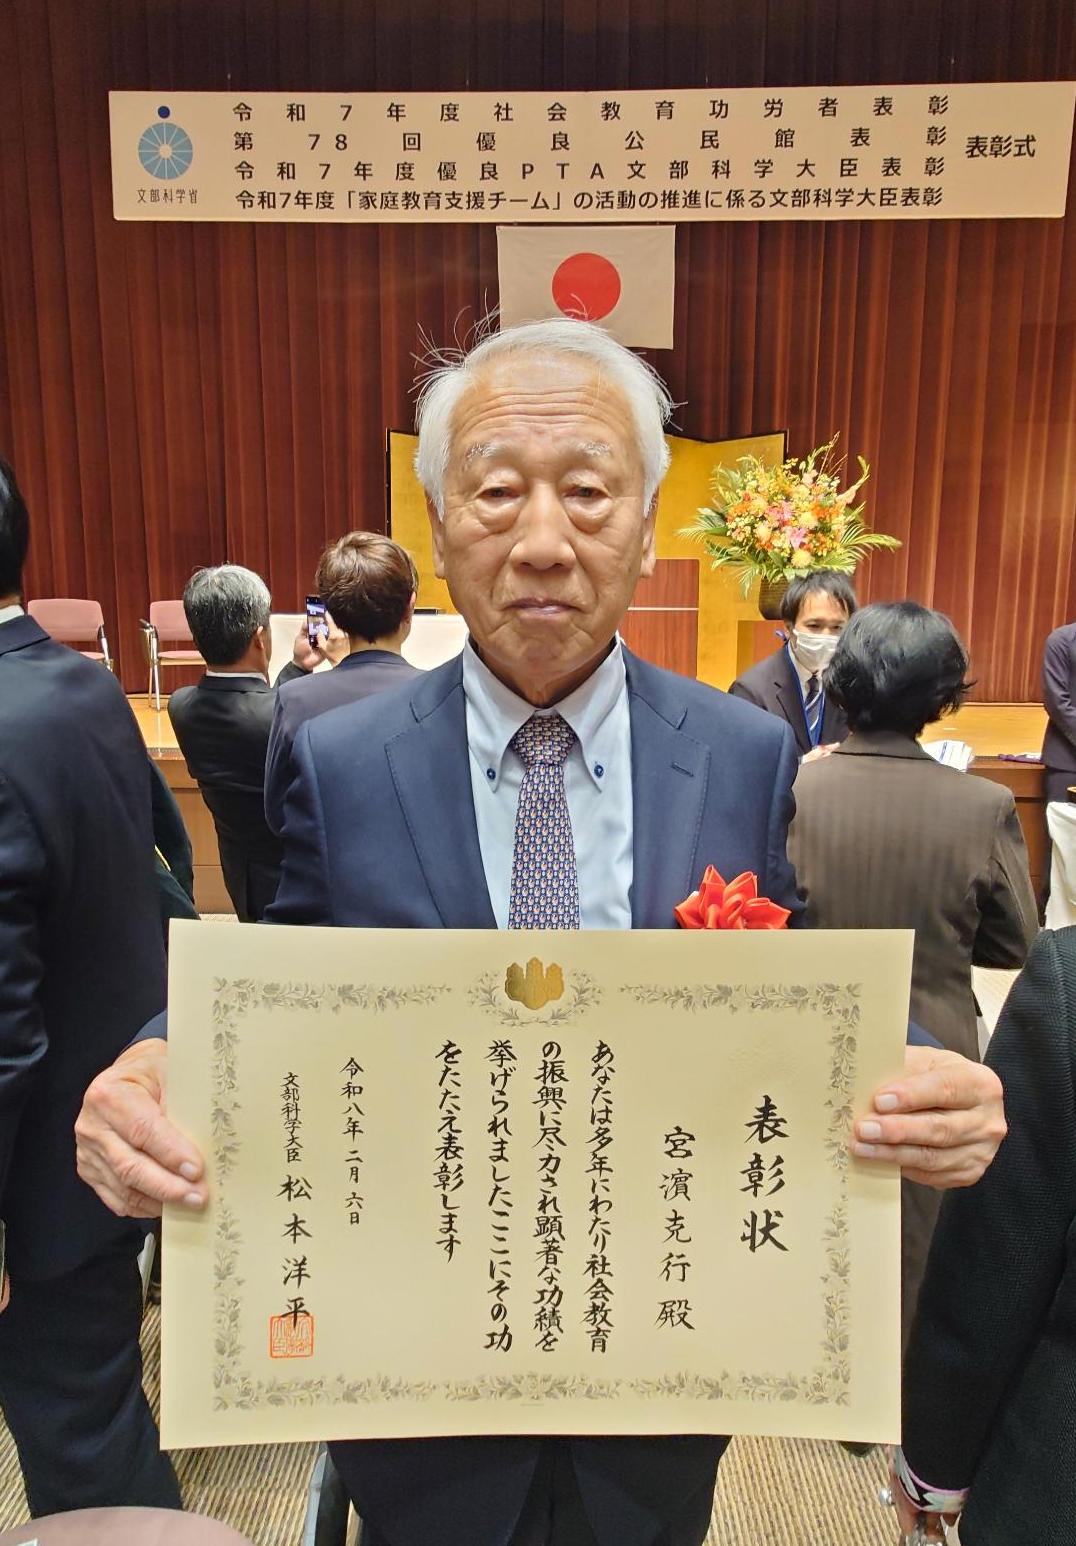 令和7年度社会教育功労者表彰
第78回優良公民館表彰
令和7年度優良PTA文部科学大臣表彰
令和7年度「家庭教育支援チーム」の活動の推進に係る文部科学大臣表彰
表彰式
文部科学省
表彰状
宮濵克行殿
あなたは多年にわたり社会教育
の振興に尽力され顕著な功績を
挙げられましたここにその功
をたたえ表彰します
令和八年二月六日
文部科学大臣 松本洋平